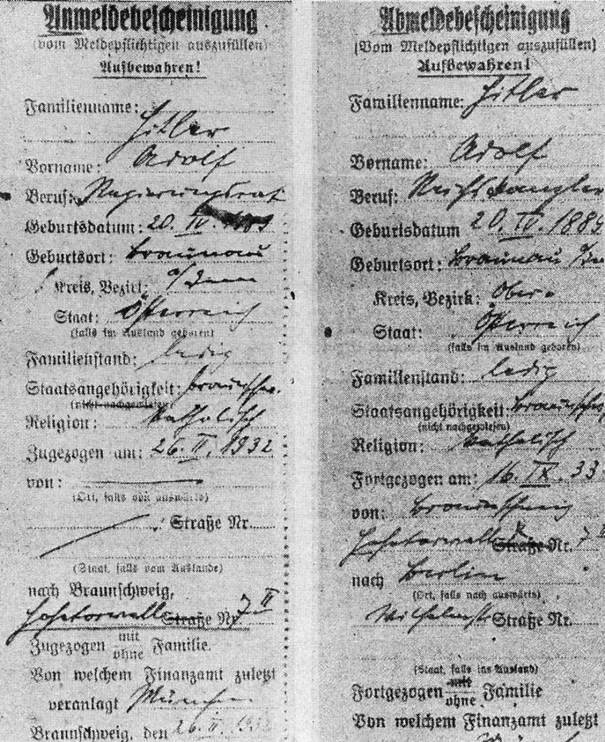 Anmeldebescheinigung
(vom Meldepflichtigen auszufüllen)
Aufbewahren!
Familienname:
Hitler
Vorname: Adolf
Beruf: Regierungsrat
Geburtsdatum: 20. IV. 1889
Geburtsort: Braunau
Kreis, Bezirk: a/Inn
Staat: Österreich
(falls im Ausland geboren)
Familienstand: ledig
Staatsangehörigkeit: braunschw.
(nicht nachgewiesen)
Religion: katholisch
Zugezogen am: 26. II. 1932
von:
(Ort, falls von auswärts)
Straße Nr.
(Staat, falls vom Auslande)
nach Braunschweig,
Hohetorwall Straße Nr. 7 II
Zugezogen mit
ohne Familie.
Von welchem Finanzamt zuletzt
veranlagt München
Braunschweig, den 26. II. 1932
Abmeldebescheinigung
(Vom Meldepflichtigen auszufüllen)
Aufbewahren!
Familienname: Hitler
Vorname: Adolf
Beruf: Reichskanzler
Geburtsdatum 20. IV. 1889
Geburtsort: Braunau a/Inn
Kreis, Bezirk: Ober-
Staat: Österreich
(falls im Ausland geboren)
Familienstand: ledig
Staatsangehörigkeit: braunschw
(nicht nachgewiesen)
Religion: katholisch
Fortgezogen am: 16. IX. 33
von: Braunschweig
Hohetorwall Straße Nr. 7 II
nach Berlin
(Ort, falls nach auswärts)
Wilhelmstr Straße Nr.
(Staat, falls ins Ausland)
Fortgezogen mit
ohne Familie
Von welchem Finanzamt zuletzt